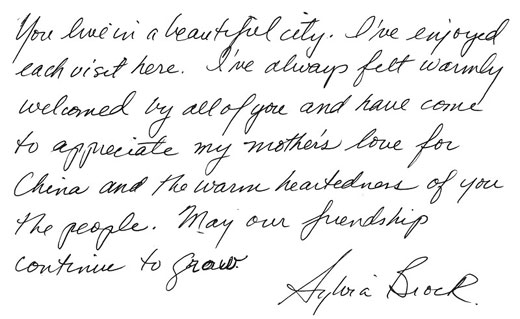 You live in a beautiful city. I've enjoyed
each visit here. I've always felt warmly
welcomed by all of you and have come
to appreciate my mother's love for
China and the warm heartedness of you
the people. May our friendship
continue to grow.
Sylvia Brock.